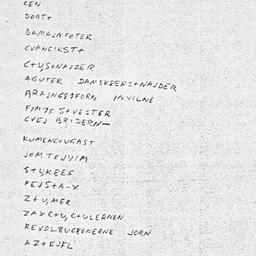 CEN
DORT+
BAMAJNFOTER
CVANCIKST+
C+YS+NAJDER
AGUTER DAMSKBERS+NAJDER
ARAJNGBFORN INVILNE
FIM7F S+VESTER
CVEJ BRIDERN—
KUMENC+UGAST
JOMTEJVIM
S+YKEES
PEJS+A-X
Z+Y,MER
ZAXC+Y,C+ULERNEN
REVOLBUCKONERNE JORN
AZ+EJFL